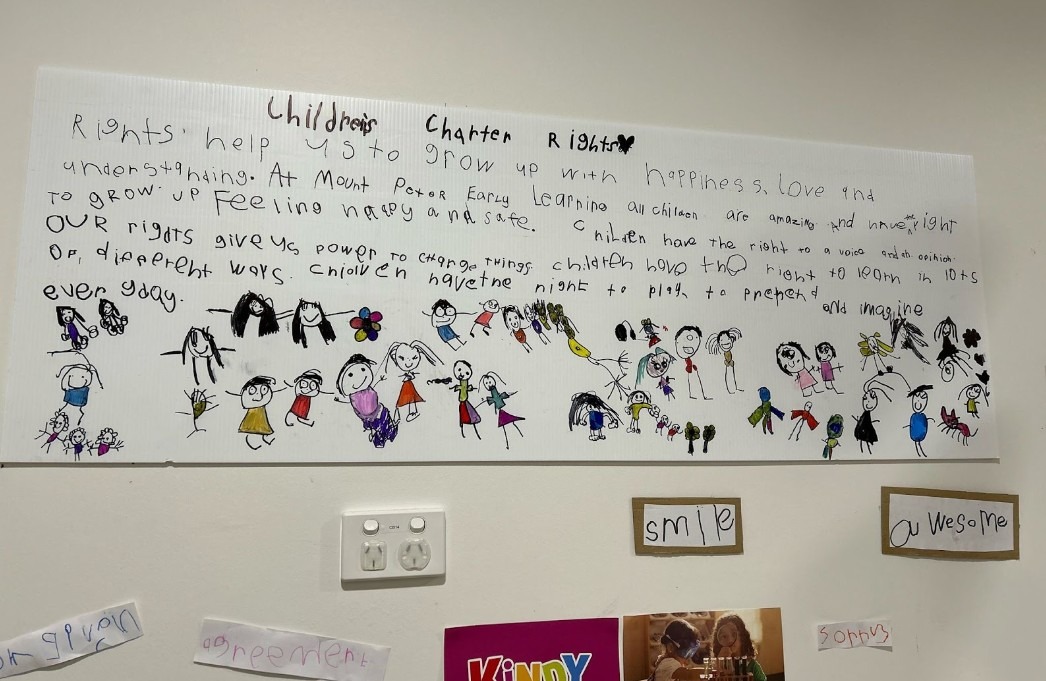 Children's Charter Rights
Rights help us to grow up with happiness, love and
understanding. At Mount Peter Early Learning all children are amazing and have the right
To grow up Feeling happy and safe. Children have the right to a voice and an opinion.
OUR rights give us power to change things children have the right to learn in lots
OF different ways. children have the right to play to pretend and imagine
every day.
smile
awesome
agreement
KiNDY